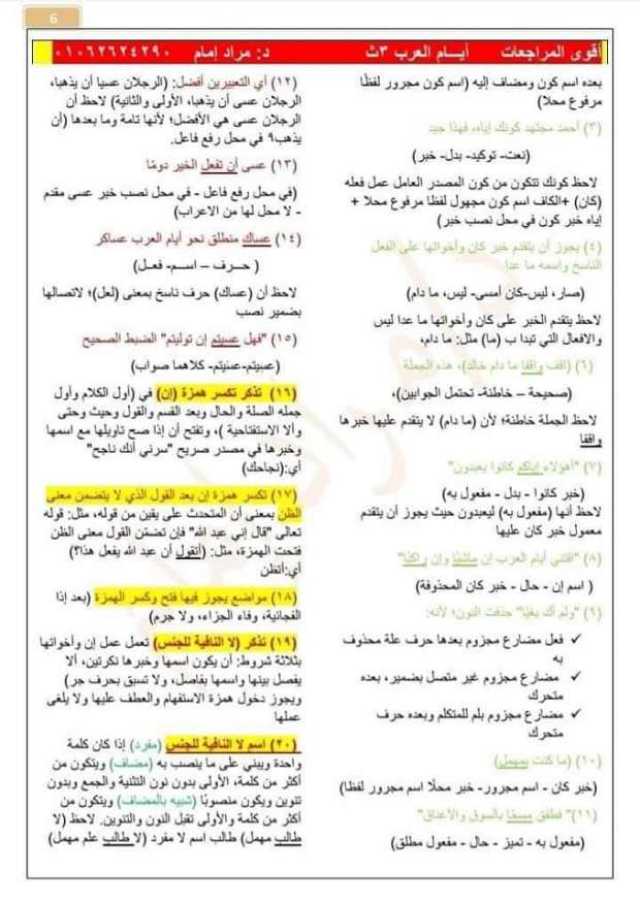 6
أقوى المراجعات أيـــام العرب ٣ث د: مراد إمام ٠١٠٦٢٦٢٤٢٩٠
بعده اسم كون ومضاف إليه (اسم كون مجرور لفظًا
مرفوع محلا)
(٣) أحمد مجتهد كونك إياه، فهذا جيد
(نعت- توكيد- بدل- خبر)
لاحظ كونك تتكون من كون المصدر العامل عمل فعله
(كان) +الكاف اسم كون مجهول لفظا مرفوع محلا +
إياه خبر كون في محل نصب خبر)
(٤) يجوز أن يتقدم خبر كان وأخواتها على الفعل
الناسخ واسمه ما عدا
(صار، ليس-كان أمسى- ليس، ما دام)
لاحظ يتقدم الخبر على كان وأخواتها ما عدا ليس
والافعال التي تبدا ب (ما) مثل: ما دام،
(٦) (اقف واقفا ما دام خالد)، هذه الجملة
(صحيحة – خاطئة- تحتمل الجوابين)،
لاحظ الجملة خاطئة؛ لأن (ما دام) لا يتقدم عليها خبرها
واقفا
(٧) "أهؤلاء إياكم كانوا يعبدون"
(خبر كانوا - بدل - مفعول به)
لاحظ أنها (مفعول به) ليعبدون حيث يجوز أن يتقدم
معمول خبر كان عليها
(٨) "اقتني أيام العرب إن ماشيًا وإن راكبًا"
( اسم إن - حال - خبر كان المحذوفة)
(٩) "ولم أك بغيا" حذفت النون؛ لأنه:
✓ فعل مضارع مجزوم بعدها حرف علة محذوف
به
✓ مضارع مجزوم غير متصل بضمير، بعده
متحرك
✓ مضارع مجزوم بلم للمتكلم وبعده حرف
متحرك
(١٠) (ما كنت بمهمل)
(خبر كان - اسم مجرور- خبر محلا اسم مجرور لفظا)
(١١) "فطفق مسحًا بالسوق والأعناق"
(مفعول به - تميز - حال - مفعول مطلق)
(١٢) أي التعبيرين أفضل: (الرجلان عسيا أن يذهبا،
الرجلان عسى أن يذهبا، الأولى والثانية) لاحظ أن
الرجلان عسى هي الأفضل؛ لأنها تامة وما بعدها (أن
يذهب٩ في محل رفع فاعل.
(١٣) عسى أن تفعل الخير دومًا
(في محل رفع فاعل - في محل نصب خبر عسى مقدم
- لا محل لها من الاعراب)
(١٤) عساك منطلق نحو أيام العرب عساكر
( حـرف – اسـم- فعـل)
لاحظ أن (عساك) حرف ناسخ بمعنى (لعل)؛ لاتصالها
بضمير نصب
(١٥) "فهل عسيتم إن توليتم" الضبط الصحيح
(عسيتم-عسيتم- كلاهما صواب)
(١٦) تذكر تكسر همزة (إن) في (أول الكلام وأول
جمله الصلة والحال وبعد القسم والقول وحيث وحتى
وألا الاستفتاحية )، وتفتح أن إذا صح تاويلها مع اسمها
وخبرها في مصدر صريح "سرني أنك ناجح"
أي:(نجاحك)
(١٧) تكسر همزة إن بعد القول الذي لا يتضمن معنى
الظن بمعنى أن المتحدث على يقين من قوله، مثل: قوله
تعالى "قال إني عبد الله" فإن تضمن القول معنى الظن
فتحت الهمزة، مثل: (أتقول أن عبد الله يفعل هذا؟)
أي:أتظن
(١٨) مواضع يجوز فيها فتح وكسر الهمزة (بعد إذا
الفجائية، وفاء الجزاء، ولا جرم)
(١٩) تذكر (لا النافية للجنس) تعمل عمل إن وأخواتها
بثلاثة شروط: أن يكون اسمها وخبرها نكرتين، ألا
يفصل بينها واسمها بفاصل، ولا تسبق بحرف جر)
ويجوز دخول همزة الاستفهام والعطف عليها ولا يلغى
عملها
(٢٠) اسم لا النافية للجنس (مفرد) إذا كان كلمة
واحدة ويبنى على ما ينصب به (مضاف) ويتكون من
أكثر من كلمة، الأولى بدون نون التثنية والجمع وبدون
تنوين ويكون منصوبًا (شبيه بالمضاف) ويتكون من
أكثر من كلمة والأولى تقبل النون والتنوين. لاحظ (لا
طالب مهمل) طالب اسم لا مفرد (لا طالب علم مهمل)